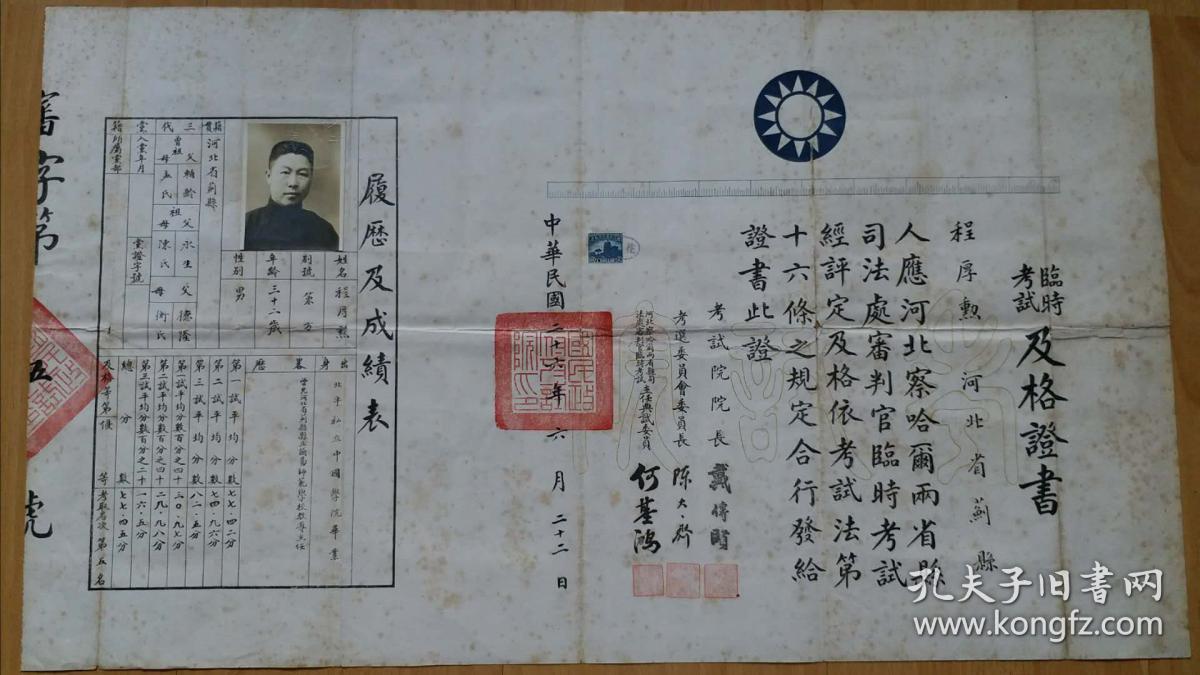 臨時考試及格證書
程厚勲河北省薊縣
人應河北察哈爾兩省縣
司法處審判官臨時考試
經評定及格依考試法第
十六條之規定合行發給
證書此證
考試院院長 戴傳賢
考選委員會委員長 陳大齊
河北察哈爾兩省縣司法處審判官臨時考試主任典試委員 何基鴻
中華民國二十六年六月二十二日
履歷及成績表
姓名 程厚勲
別號
年齡 三十二歲
性別 男
籍貫 河北省薊縣
三代
曾祖 父 輔齡 母 孟氏
祖 父 永生 母 陳氏
父 德隆 母 衛氏
黨籍
入黨年月
黨證字號
所屬黨部
出身 北平私立中國學院畢業
畧歷 曾充河北省薊縣縣立簡易師範學校教導主任
第一試平均分數 七七·四二分
第二試平均分數 七四·九六分
第三試平均分數 八二·五分
第一試平均分數百分之四十 三〇·九七分
第二試平均分數百分之四十 二九·九八分
第三試平均分數百分之二十 一六·五分
總分數 七七·四五分
及格等第 優等 考取名次 第五名
審字第
五
號
孔夫子旧书网
www.kongfz.com